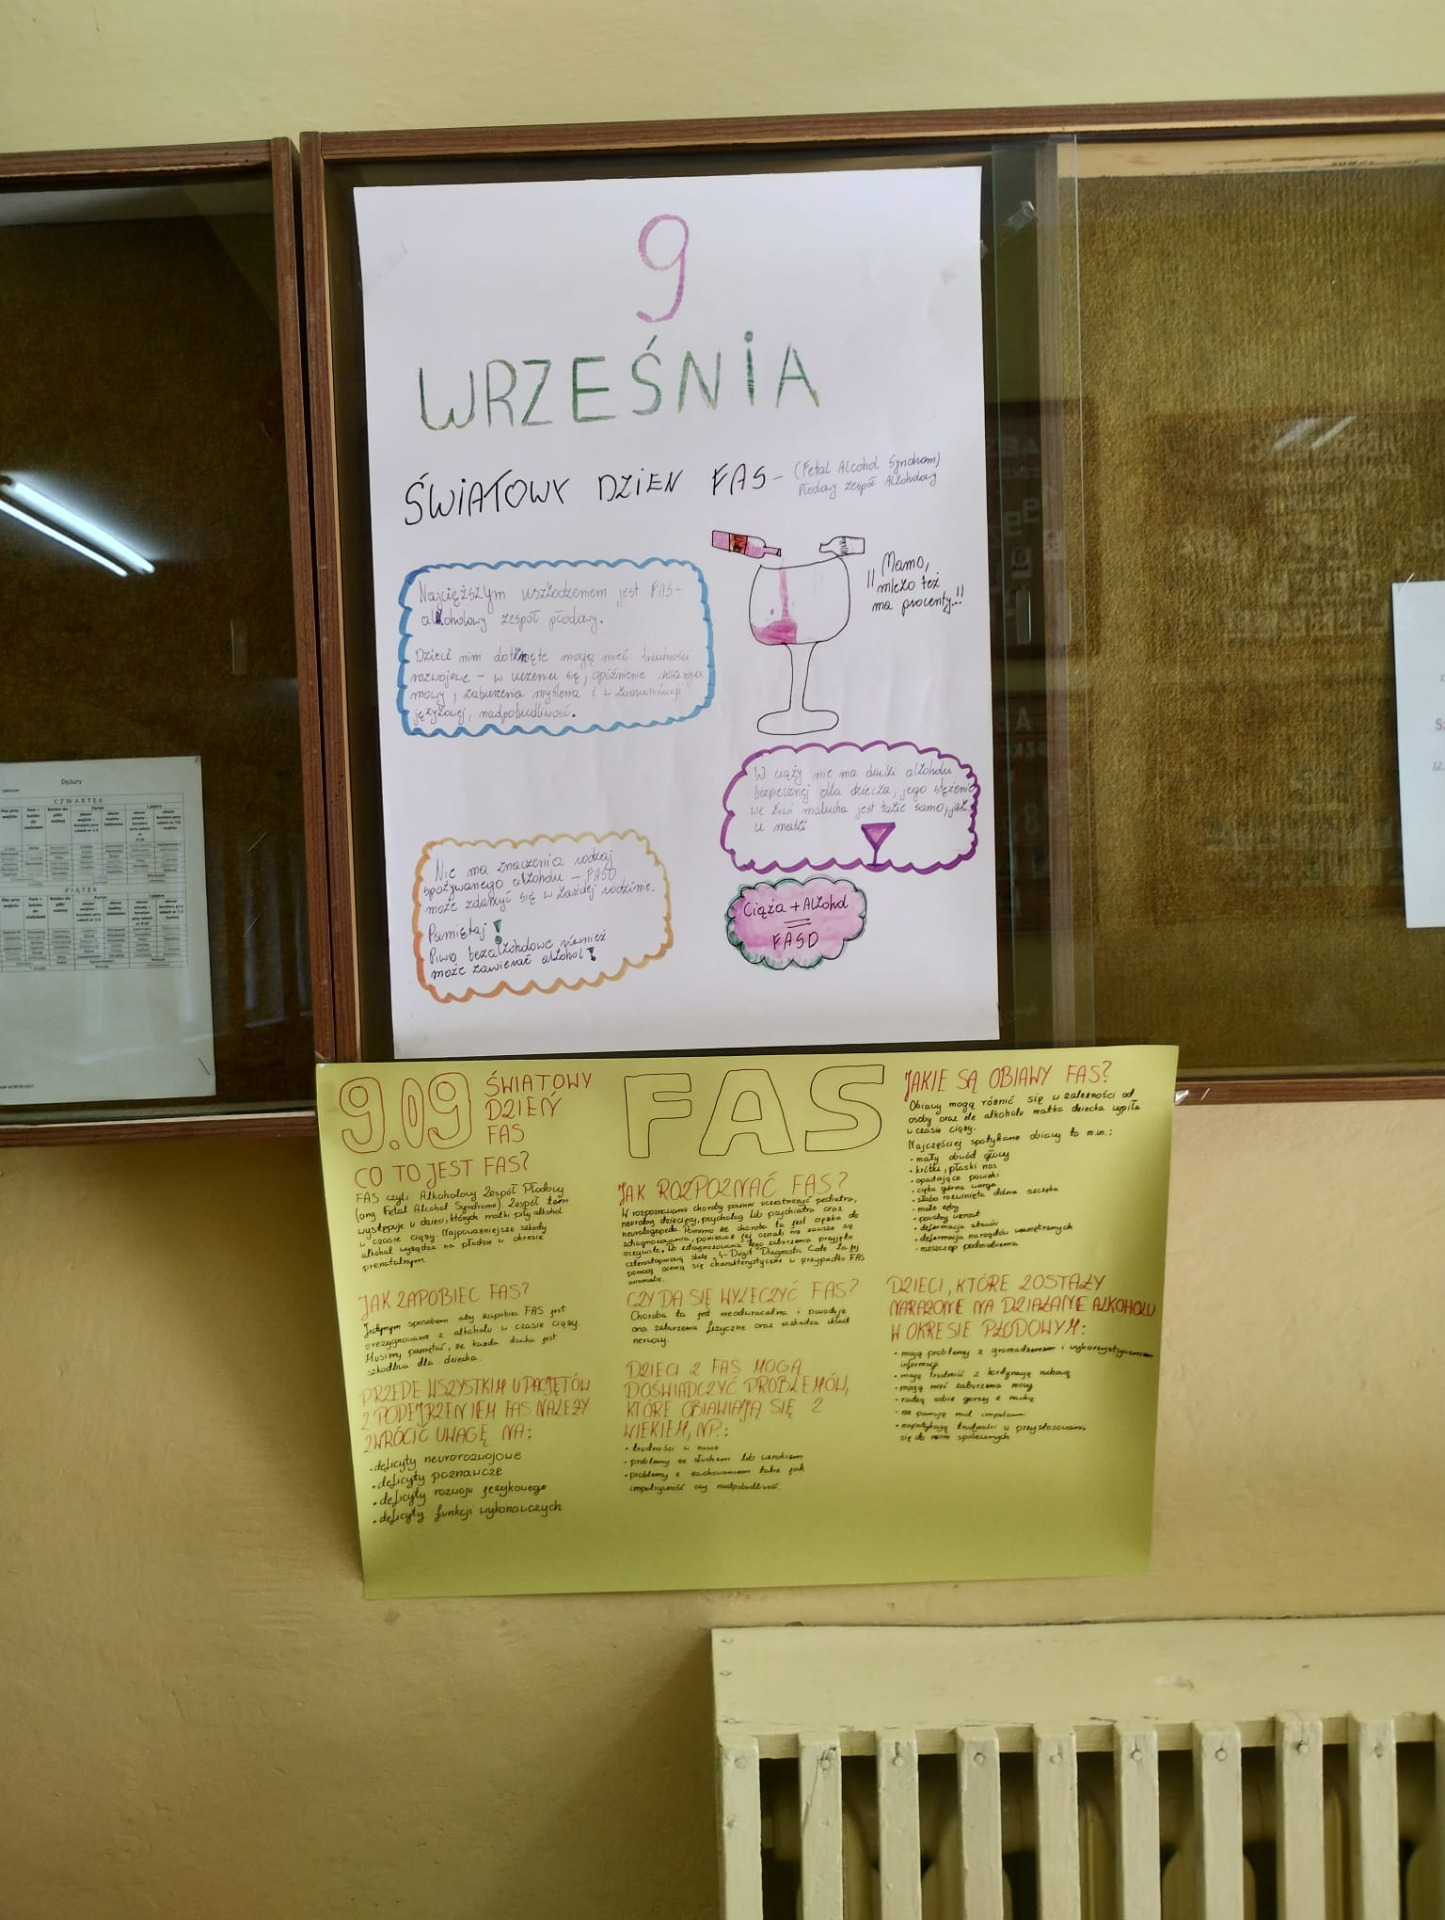 9
WRZEŚNIA
ŚWIATOWY DZIEŃ FAS - (Fetal Alcohol Syndrom)
Płodowy zespół Alkoholowy
Najcięższym uszkodzeniem jest FAS-
alkoholowy zespół płodowy.
Dzieci nim dotknięte mogą mieć trudności
rozwojowe - w uczeniu się, opóźnienie rozwoju
mowy, zaburzenia myślenia i w komunikacji
językowej, nadpobudliwość.
Mamo,
" mleko też
ma procenty!"
W ciąży nie ma dawki alkoholu
bezpiecznej dla dziecka, jego stężenie
we krwi malucha jest takie samo, jak
u matki
Nie ma znaczenia rodzaj
spożywanego alkoholu - FASD
może zdarzyć się w każdej rodzinie.
Pamiętaj!
Piwo bezalkoholowe również
może zawierać alkohol!
Ciąża + Alkohol
=
FASD
Dyżury
CZWARTEK
PIĄTEK
9.09 ŚWIATOWY
DZIEŃ
FAS
CO TO JEST FAS?
FAS czyli Alkoholowy Zespół Płodowy
(ang Fetal Alcohol Syndrome). Zespół ten
występuje u dzieci, których matki piły alkohol
w czasie ciąży. Najpoważniejsze szkody
alkohol wyrządza na płodzie w okresie
prenatalnym.
JAK ZAPOBIEC FAS?
Jedynym sposobem aby zapobiec FAS jest
zrezygnowanie z alkoholu w czasie ciąży.
Musimy pamiętać, że każda dawka jest
szkodliwa dla dziecka.
PRZEDE WSZYSTKIM U PACJĘTÓW
Z PODEJRZENIEM FAS NALEŻY
ZWRÓCIĆ UWAGĘ NA:
• deficyty neurorozwojowe
• deficyty poznawcze
• deficyty rozwoju językowego
• deficyty funkcji wykonawczych
FAS
JAK ROZPOZNAĆ FAS?
W rozpoznawaniu choroby powinni uczestniczyć pediatra,
neurolog dziecięcy, psycholog lub psychiatra oraz
neurologopeda. Pomimo że choroba ta jest ciężka do
zdiagnozowania, ponieważ jej oznaki nie zawsze są
oczywiste, do zdiagnozowania tego zaburzenia przyjęto
czterostopniową skalę 4-Digit Diagnostic Code. Za jej
pomocą ocenia się charakterystyczne w przypadku FAS
anomalie.
CZY DA SIĘ WYLECZYĆ FAS?
Choroba ta jest nieodwracalna i powoduje
ona zaburzenia fizyczne oraz uszkadza układ
nerwowy.
DZIECI Z FAS MOGĄ
DOŚWIADCZYĆ PROBLEMÓW,
KTÓRE OBIAWIAJĄ SIĘ Z
WIEKIEM, NP.:
• trudności w nauce
• problemy ze słuchem lub wzrokiem
• problemy z zachowaniem takie jak
impulsywność czy nadpobudliwość.
JAKIE SĄ OBIAWY FAS?
Obiawy mogą różnić się w zależności od
osoby oraz ile alkoholu matka dziecka wypiła
w czasie ciąży.
Najczęściej spotykane obiawy to m.in.:
• mały obwód głowy
• krótki, płaski nos
• opadające powieki
• cięka górna warga
• słabo rozwinięta dolna szczęka
• małe zęby
• powolny wzrost
• deformacja stawów
• deformacja narządów wewnętrznych
• rozszczep podniebienia
DZIECI, KTÓRE ZOSTAŁY
NARAŻONE NA DZIAŁANIE ALKOHOLU
W OKRESIE PŁODOWYM:
• mają problemy z gromadzeniem i wykorzystywaniem
informacji
• mają trudność z kordynacją ruchową
• mogą mieć zaburzenia mowy
• radzą sobie gorzej z nauką
• nie panują nad impulsami
• napotykają trudności w przystosowaniu
się do norm społecznych